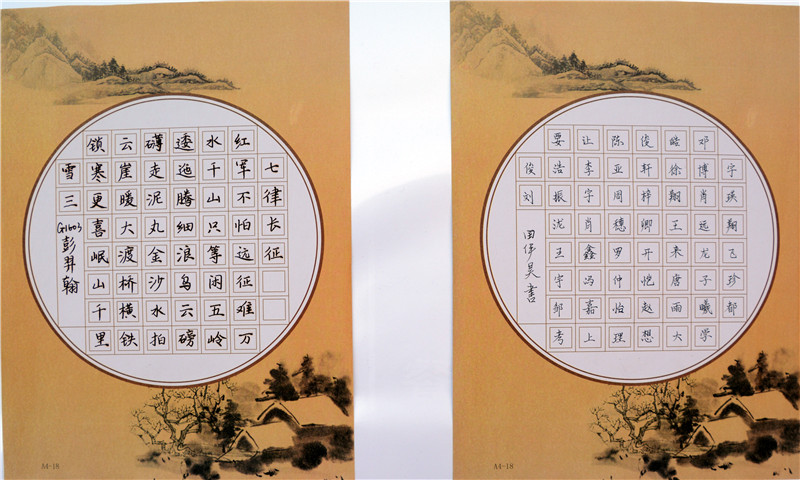 七律长征
红军不怕远征难万
水千山只等闲五岭
逶迤腾细浪乌云磅
礴走泥丸金沙水拍
云崖暖大渡桥横铁
锁寒更喜岷山千里
雪三
G1603彭羿翰
A4-18
要让陈俊皓邓
俊浩李亚轩徐博宇
刘振宇周梓翔肖瑛
泷肖穗卿王远翔
王鑫罗开来龙飞
宇冯仲恺唐子珍
邹嘉怡赵雨曦都
考上理想大学
田伊昊書
A4-18